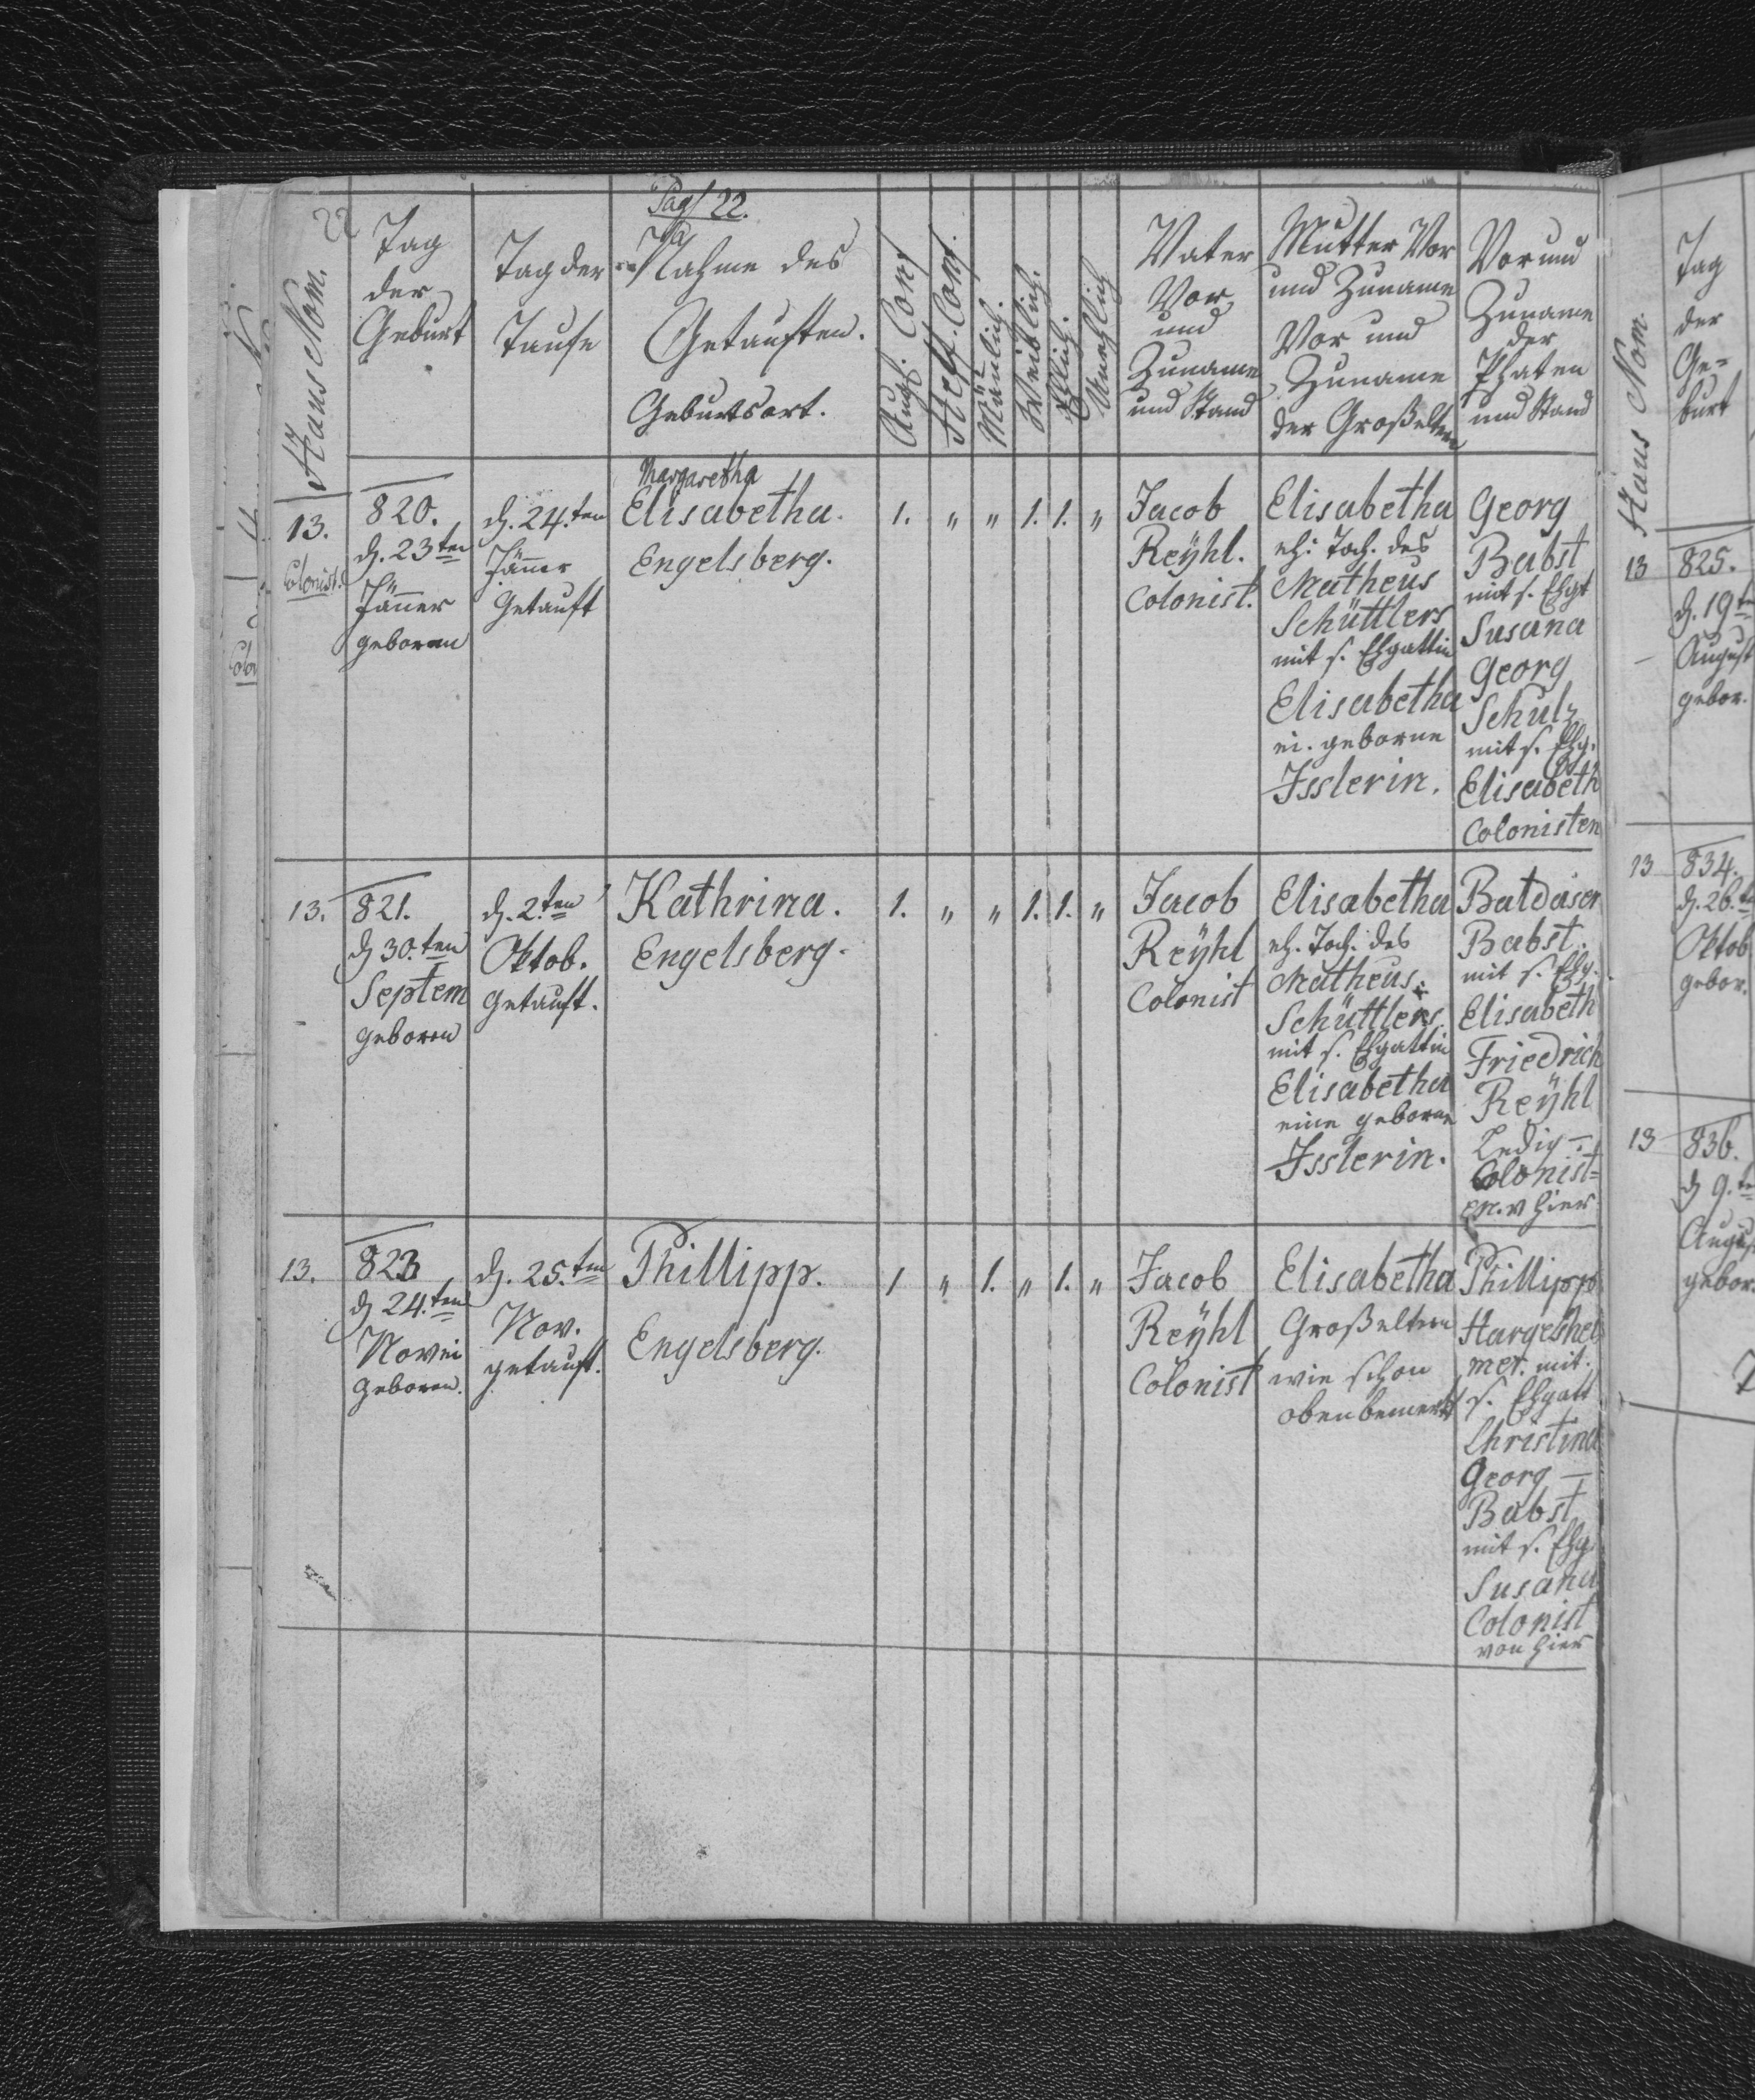 22
Pag 22.
Haus Nom.
Tag
der
Geburt
Tag der
Taufe
Nahme des
Getauften.
Geburtsort.
Augs. Conf
Helf. Conf.
Mänlich.
Weiblich.
Ehlich.
Unehlich
Vater
Vor
und
Zuname
und Stand
Mutter Vor
und Zuname
Vor und
Zuname
der Großeltern
Vor und
Zuname
der
Phaten
und Stand
13.
Colonist.
820.
d. 23ten
Jänner
geboren
d. 24.ten
Jänner
Getauft
Margaretha
Elisabetha.
Engelsberg.
1. " " 1. 1. "
Jacob
Reÿhl.
Colonist.
Elisabetha
eh: Toch. des
Matheus
Schüttlers
mit s. Ehgattin
Elisabetha
ei. geborne
Isslerin.
Georg
Babst
mit s. Ehgt
Susana
Georg
Schulz
mit s. Ehg.
Elisabeth
Colonisten
13.
821.
d 30.ten
Septem
geboren
d. 2.ten
Oktob.
getauft.
Kathrina.
Engelsberg.
1. " " 1. 1. "
Jacob
Reÿhl
Colonist
Elisabetha
eh. Toch. des
Matheus.
Schüttlers
mit s. Ehgattin
Elisabetha
eine geborne
Isslerin.
Batdaser
Babst.
mit s. Ehg.
Elisabeth
Friedrich
Reÿhl
Ledig –
Colonist=
en. v hier
13.
823
d 24.ten
Novei
geboren.
d. 25.ten
Nov.
getauft.
Phillipp.
Engelsberg.
1 " 1. " 1. "
Jacob
Reÿhl
Colonist
Elisabetha
Großeltern
wie schon
oben bemerkt
Phillipp
Hargeshei
mer. mit.
s. Ehgatt
Christina
Georg –
Babst
mit s. Ehg.
Susana
Colonist
von hier
Haus Nom.
Tag
der
Ge=
burt
13
825.
d. 19t
August
gebor.
13
834.
d. 26.t
Oktob
gebor.
13
836.
d 9.te
Augus
gebor.